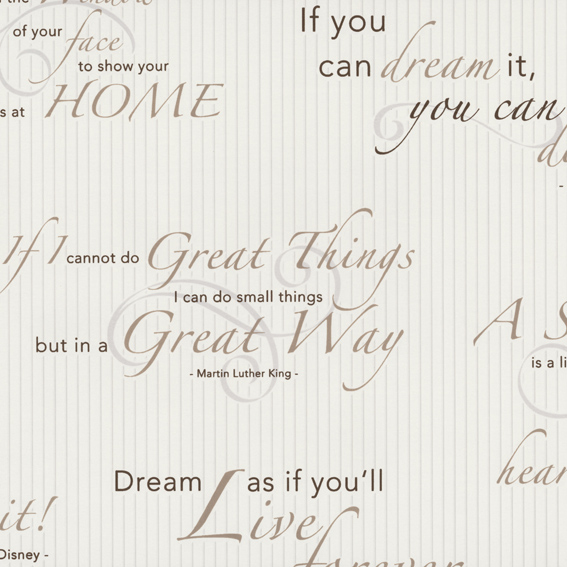 of your face
to show your
s at HOME
If you
can dream it,
you can
-
If I cannot do Great Things
I can do small things
but in a Great Way
- Martin Luther King -
A S
is a li
hear
it!
Disney -
Dream as if you'll
Live
forever